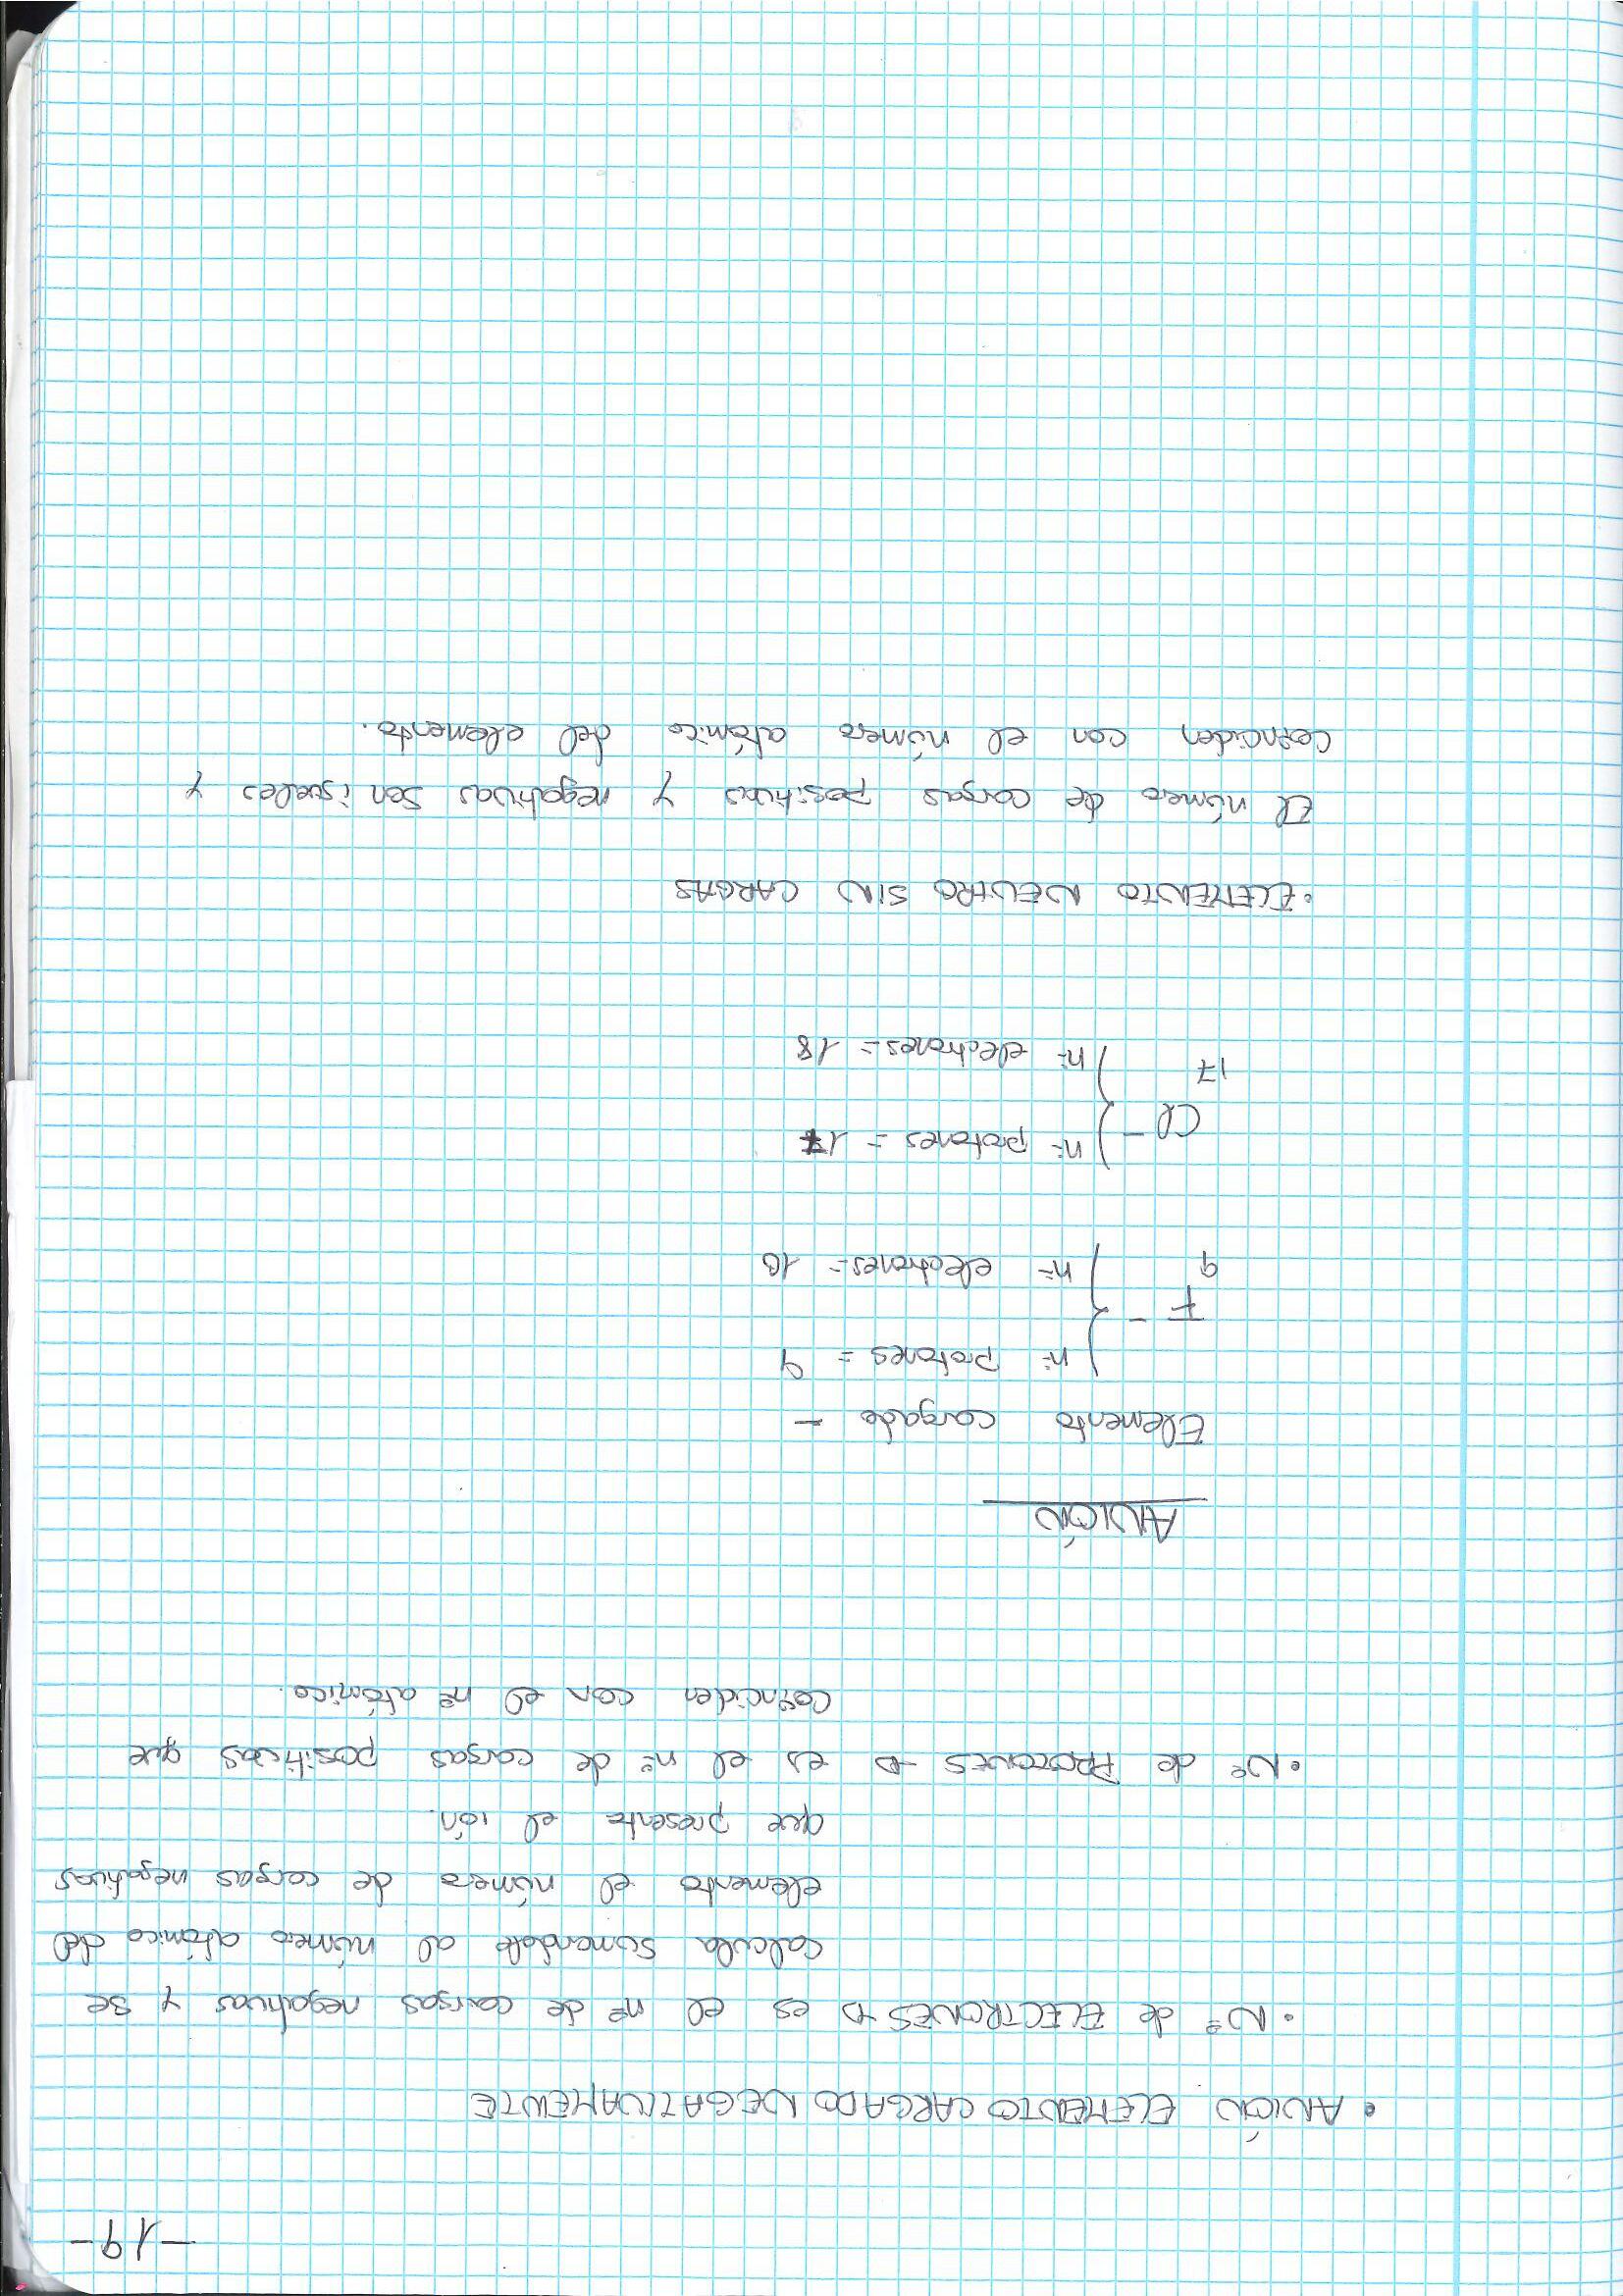 -19-
• ANIÓN ELEMENTO CARGADO NEGATIVAMENTE
• Nº de ELECTRONES → es el nº de cargas negativas y se
calcula sumandole al número atómico del
elemento el número de cargas negativas
que presenta el ión.
• Nº de PROTONES → es el nº de cargas positivas que
coinciden con el nº atómico.
ANIÓN
Elemento cargado -
nº protones = 9
F -
9 nº electrones = 10
nº protones = 17
Cl -
17 nº electrones = 18
• ELEMENTO NEUTRO SIN CARGAS
El número de cargas positivas y negativas son iguales y
coinciden con el número atómico del elemento.